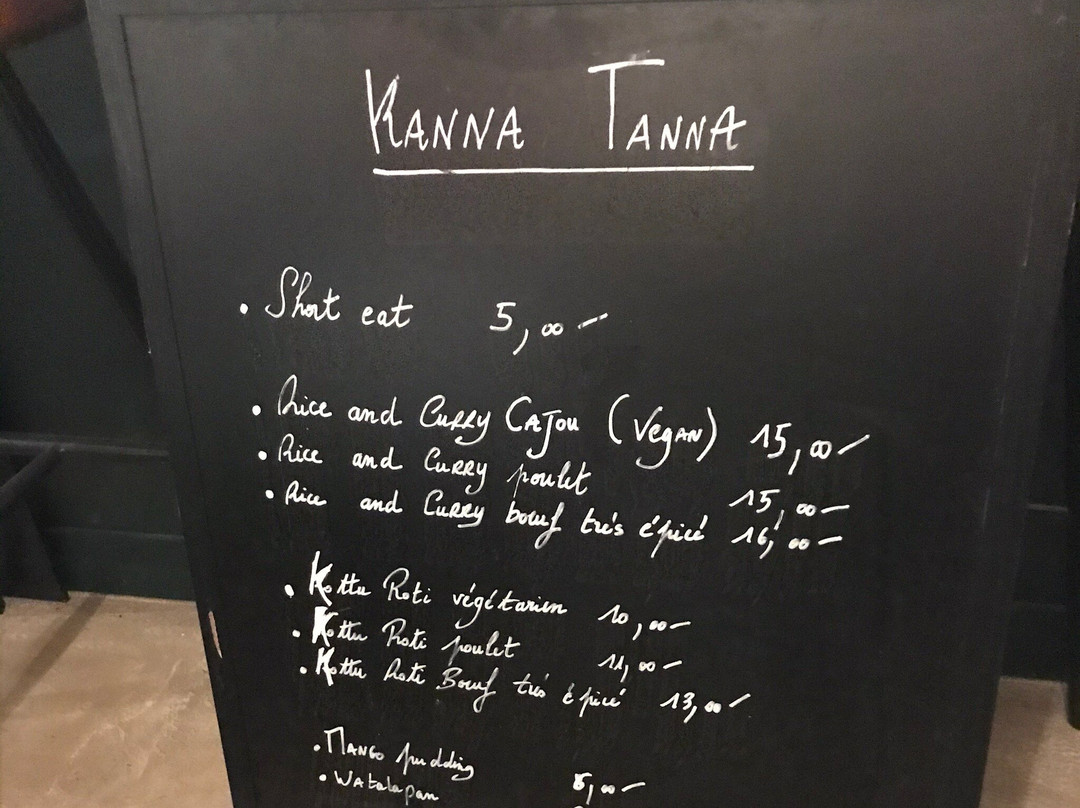 KANNA TANNA
• Short eat 5,00-
• Rice and Curry Cajou (Vegan) 15,00-
• Rice and Curry poulet 15,00-
• Rice and Curry bœuf très épicé 16,00-
• Kottu Roti végétarien 10,00-
• Kottu Roti poulet 11,00-
• Kottu Roti Bœuf très épicé 13,00-
• Mango pudding 5,00-
• Watalapan